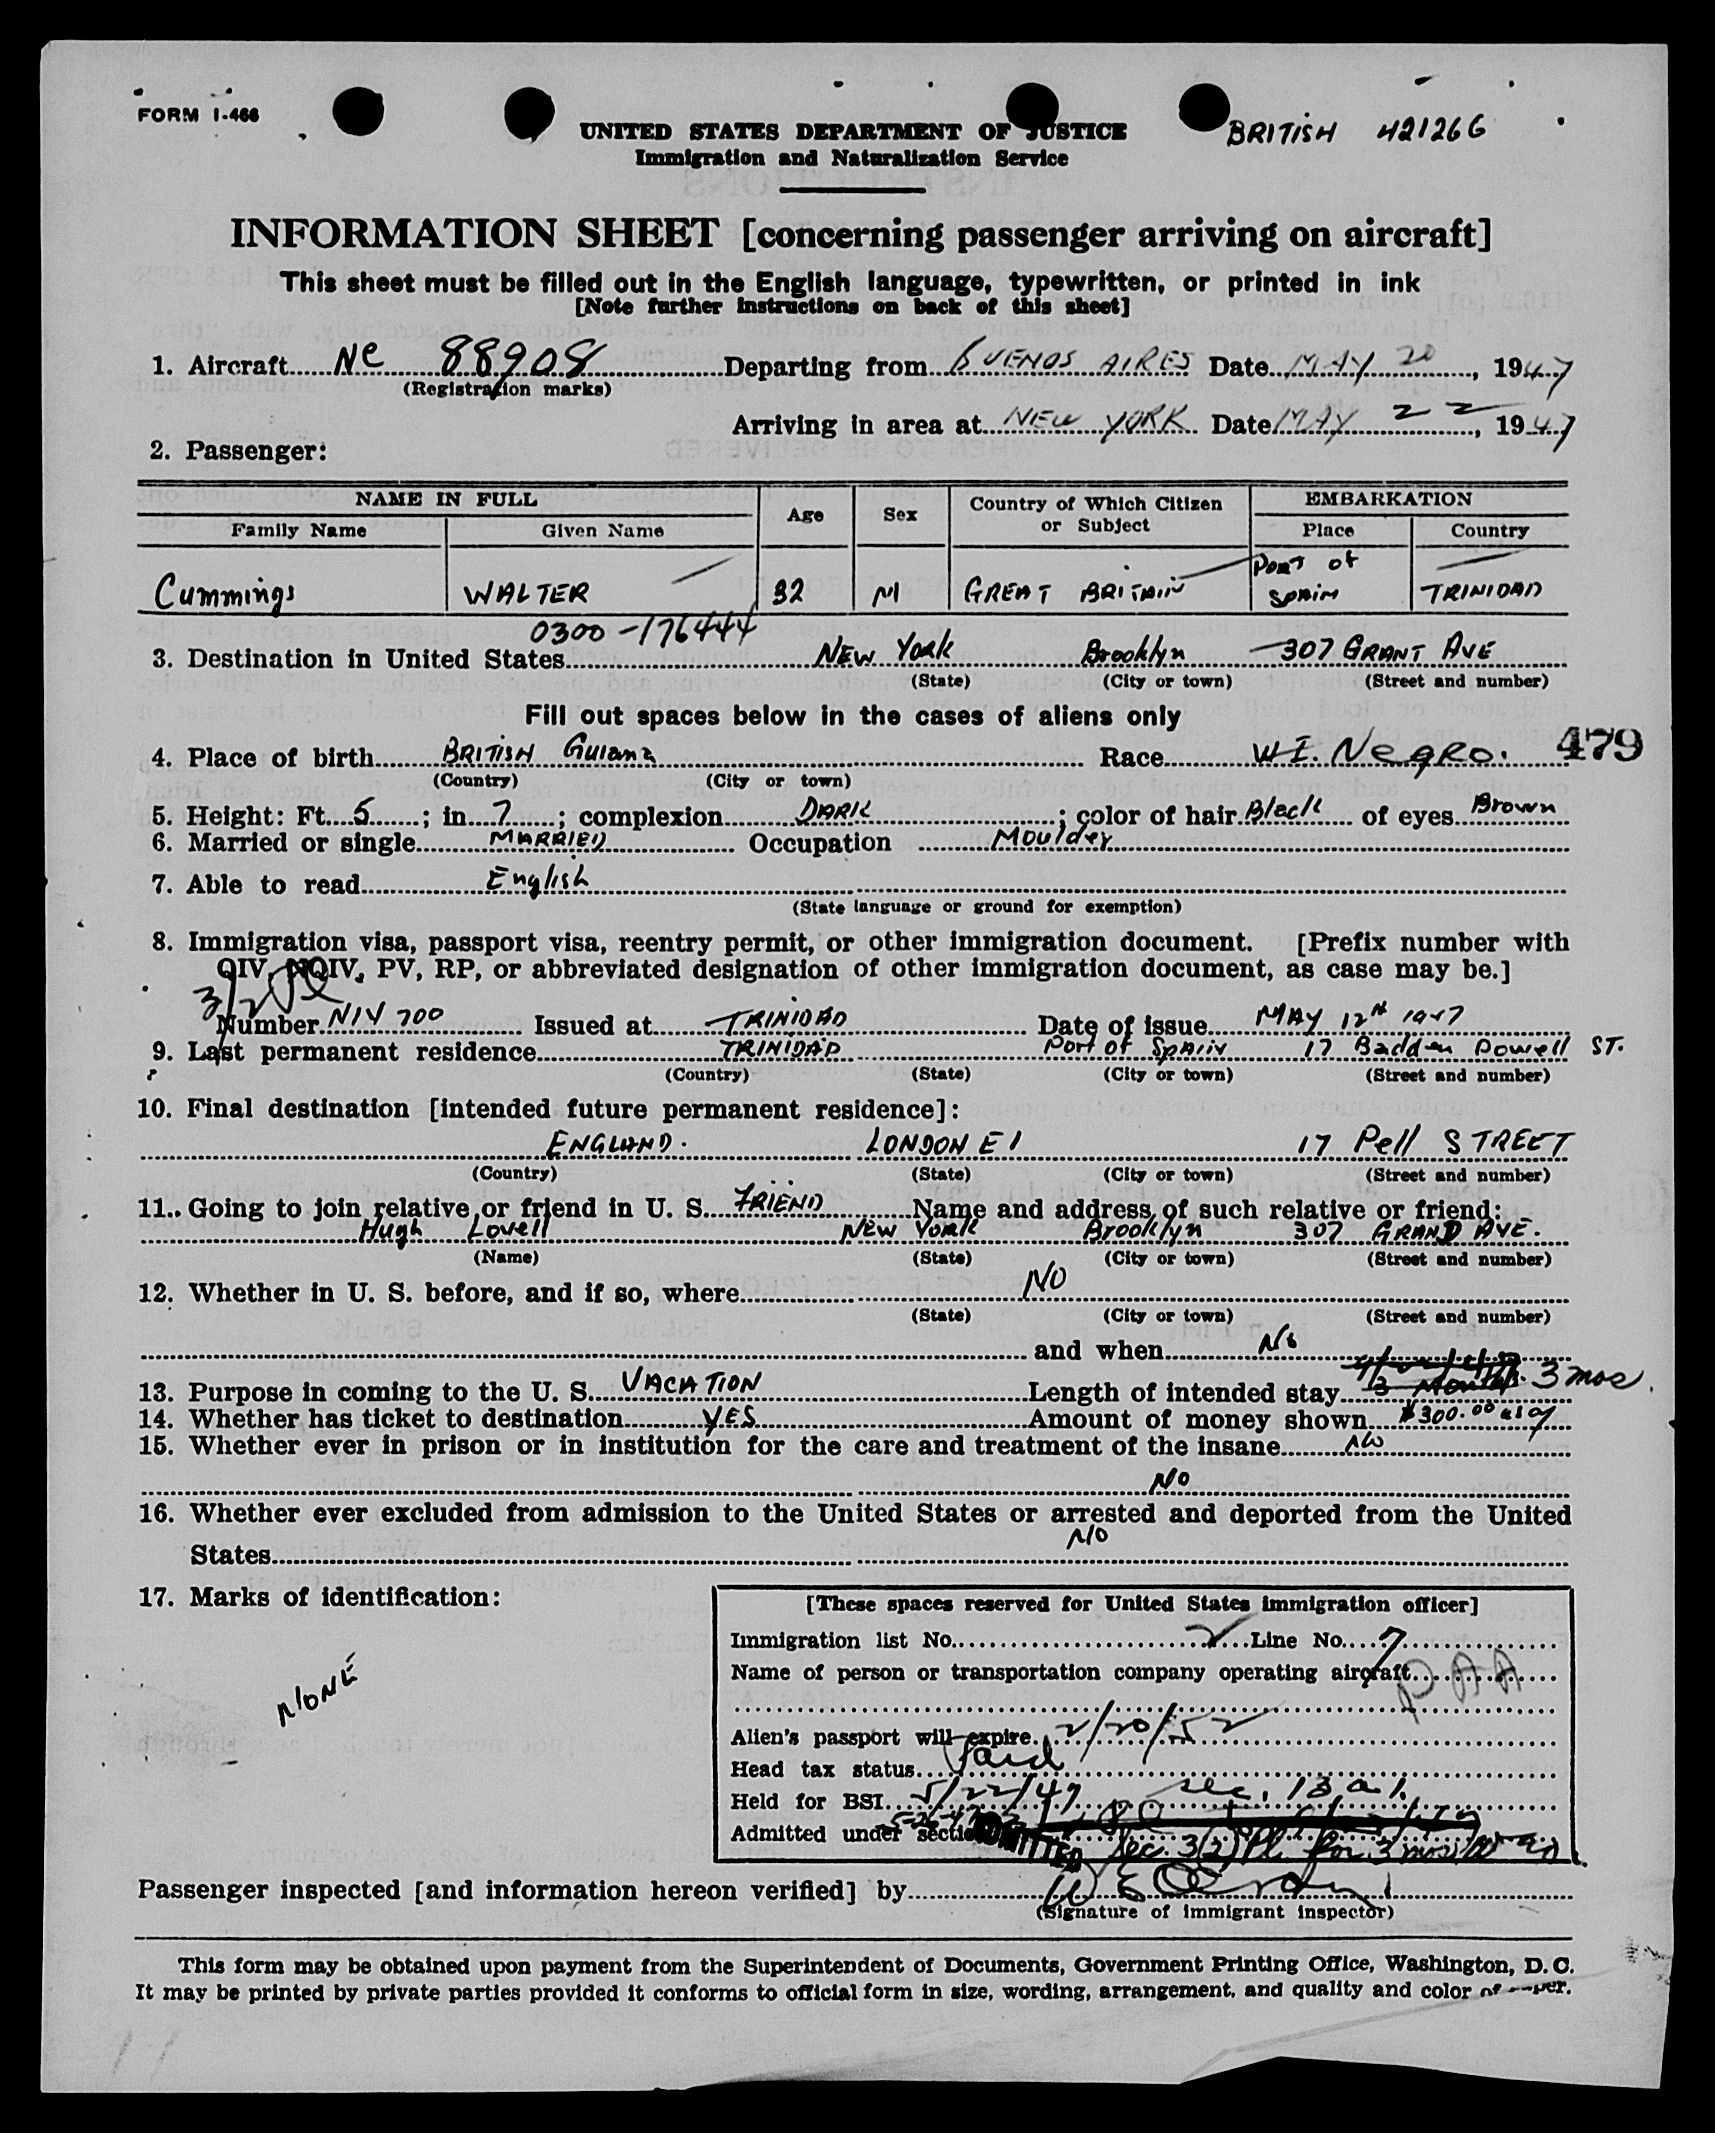 FORM I-466
BRITISH 421266
UNITED STATES DEPARTMENT OF JUSTICE
Immigration and Naturalization Service
INFORMATION SHEET [concerning passenger arriving on aircraft]
This sheet must be filled out in the English language, typewritten, or printed in ink
[Note further instructions on back of this sheet]
1. Aircraft NC 88908 Departing from BUENOS AIRES Date MAY 20, 1947
(Registration marks)
Arriving in area at NEW YORK Date MAY 22, 1947
2. Passenger:
NAME IN FULL Age Sex Country of Which Citizen or Subject EMBARKATION
Family Name Given Name Place Country
Cummings WALTER 32 M GREAT BRITAIN Port of SPAIN TRINIDAD
0300-176444
3. Destination in United States NEW YORK Brooklyn 307 GRANT AVE
(State) (City or town) (Street and number)
Fill out spaces below in the cases of aliens only
479
4. Place of birth BRITISH Guiana Race W.I. Negro.
(Country) (City or town)
5. Height: Ft. 5; in. 7; complexion DARK; color of hair Black of eyes Brown
6. Married or single MARRIED Occupation Moulder
7. Able to read English
(State language or ground for exemption)
8. Immigration visa, passport visa, reentry permit, or other immigration document. [Prefix number with
QIV, NQIV, PV, RP, or abbreviated designation of other immigration document, as case may be.]
3/2
Number NIV 700 Issued at TRINIDAD Date of issue MAY 12th 1947
9. Last permanent residence TRINIDAD Port of Spain 17 Badden Powell ST.
(Country) (State) (City or town) (Street and number)
10. Final destination [intended future permanent residence]:
ENGLAND. LONDON E1 17 Pell STREET
(Country) (State) (City or town) (Street and number)
11. Going to join relative or friend in U. S. FRIEND Name and address of such relative or friend:
Hugh Lovell NEW YORK Brooklyn 307 GRAND AVE.
(Name) (State) (City or town) (Street and number)
12. Whether in U. S. before, and if so, where NO
(State) (City or town) (Street and number)
and when No
13. Purpose in coming to the U. S. VACATION Length of intended stay 3 Months 3 mos.
14. Whether has ticket to destination YES Amount of money shown $300.00
15. Whether ever in prison or in institution for the care and treatment of the insane No
NO
16. Whether ever excluded from admission to the United States or arrested and deported from the United
States NO
17. Marks of identification:
NONE
[These spaces reserved for United States immigration officer]
Immigration list No. 2 Line No. 7
Name of person or transportation company operating aircraft PAA
Alien's passport will expire 2/20/52
Head tax status Paid
Held for BSI 5/22/47 sec. 13 a 1.
Admitted under section 5-26-47 ADMITTED Sec. 3(2) for 3 mos
Passenger inspected [and information hereon verified] by
(Signature of immigrant inspector)
This form may be obtained upon payment from the Superintendent of Documents, Government Printing Office, Washington, D. C.
It may be printed by private parties provided it conforms to official form in size, wording, arrangement, and quality and color of paper.